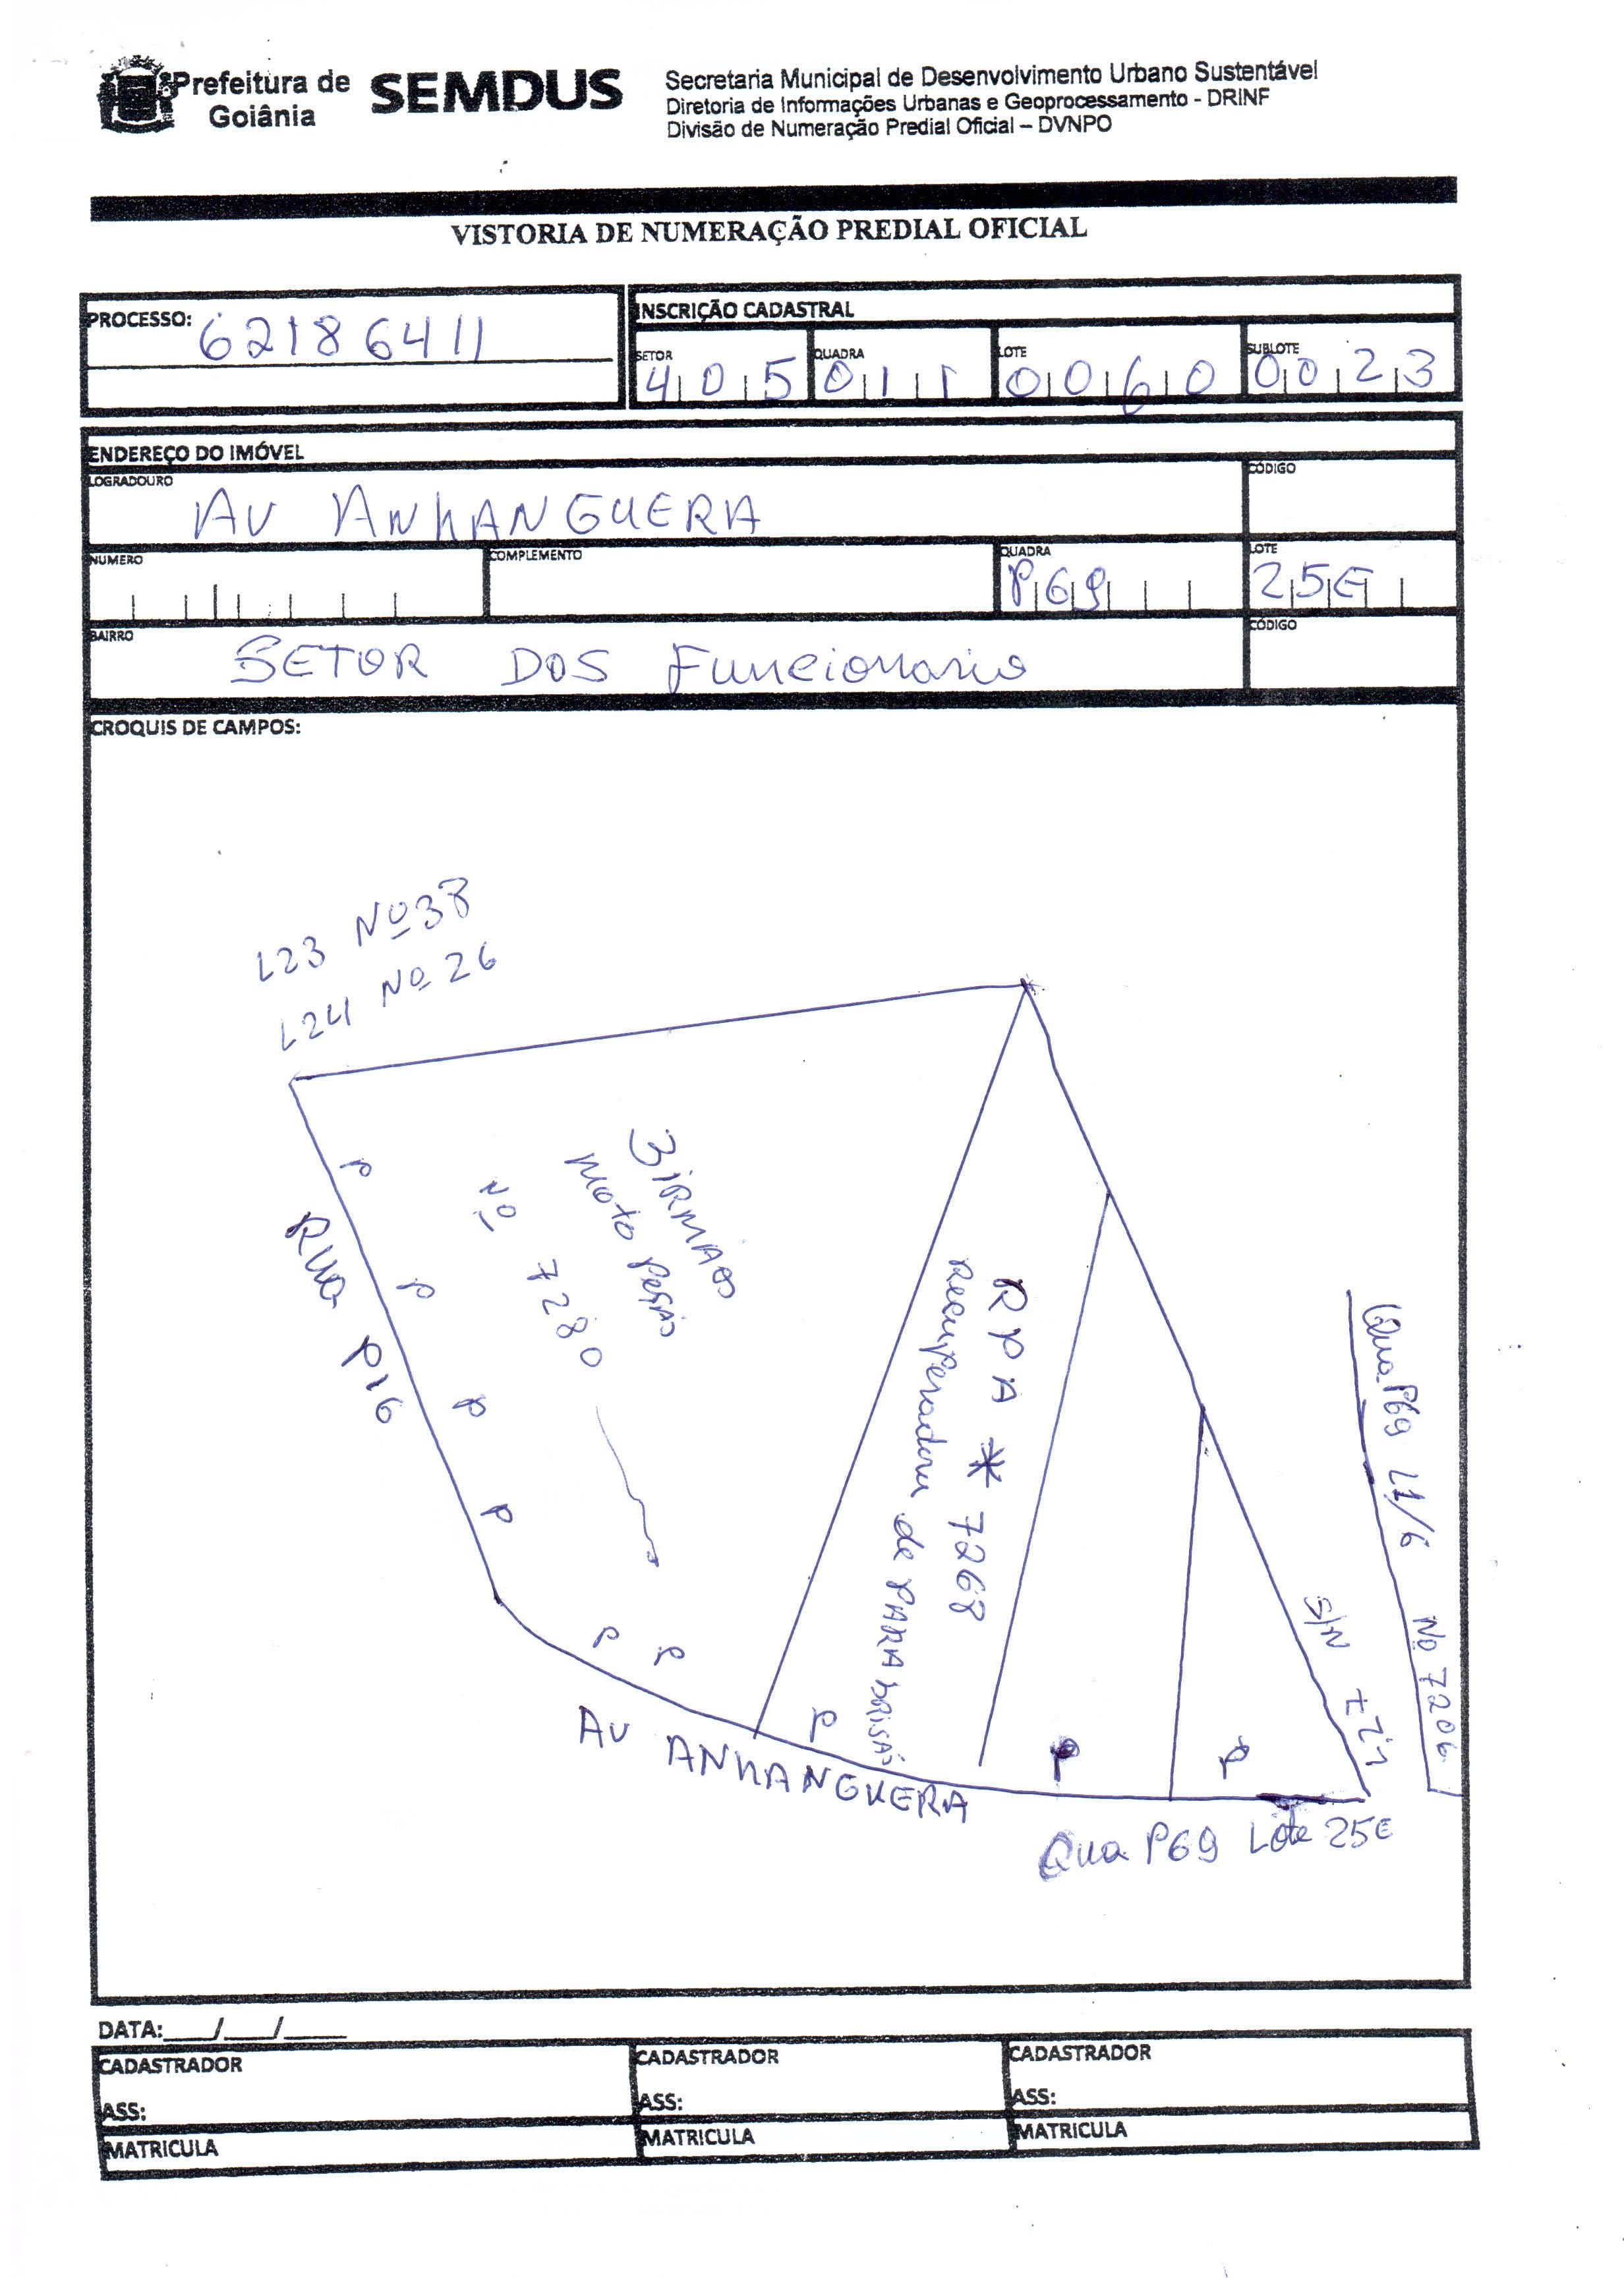 Prefeitura de Goiânia
SEMDUS
Secretaria Municipal de Desenvolvimento Urbano Sustentável
Diretoria de Informações Urbanas e Geoprocessamento - DRINF
Divisão de Numeração Predial Oficial – DVNPO
VISTORIA DE NUMERAÇÃO PREDIAL OFICIAL
PROCESSO: 62186411
INSCRIÇÃO CADASTRAL
SETOR QUADRA LOTE SUBLOTE
405 011 0060 0023
ENDEREÇO DO IMÓVEL
LOGRADOURO CÓDIGO
AV ANHANGUERA
NUMERO COMPLEMENTO QUADRA LOTE
P69 25E
BAIRRO CÓDIGO
SETOR DOS Funcionario
CROQUIS DE CAMPOS:
L23 Nº 38
L24 Nº 26
3 IRMAOS
Moto Peças
Nº 7280
RUA P16
P
P
P
P
P
P
RPA * 7268
Recuperadora de PARABRISAS
P
P
P
AV ANHANGUERA
Qua P69 L1/6 Nº 7206
S/N
Qua P69 Lote 25E
DATA:___/___/____
CADASTRADOR CADASTRADOR CADASTRADOR
ASS: ASS: ASS:
MATRICULA MATRICULA MATRICULA